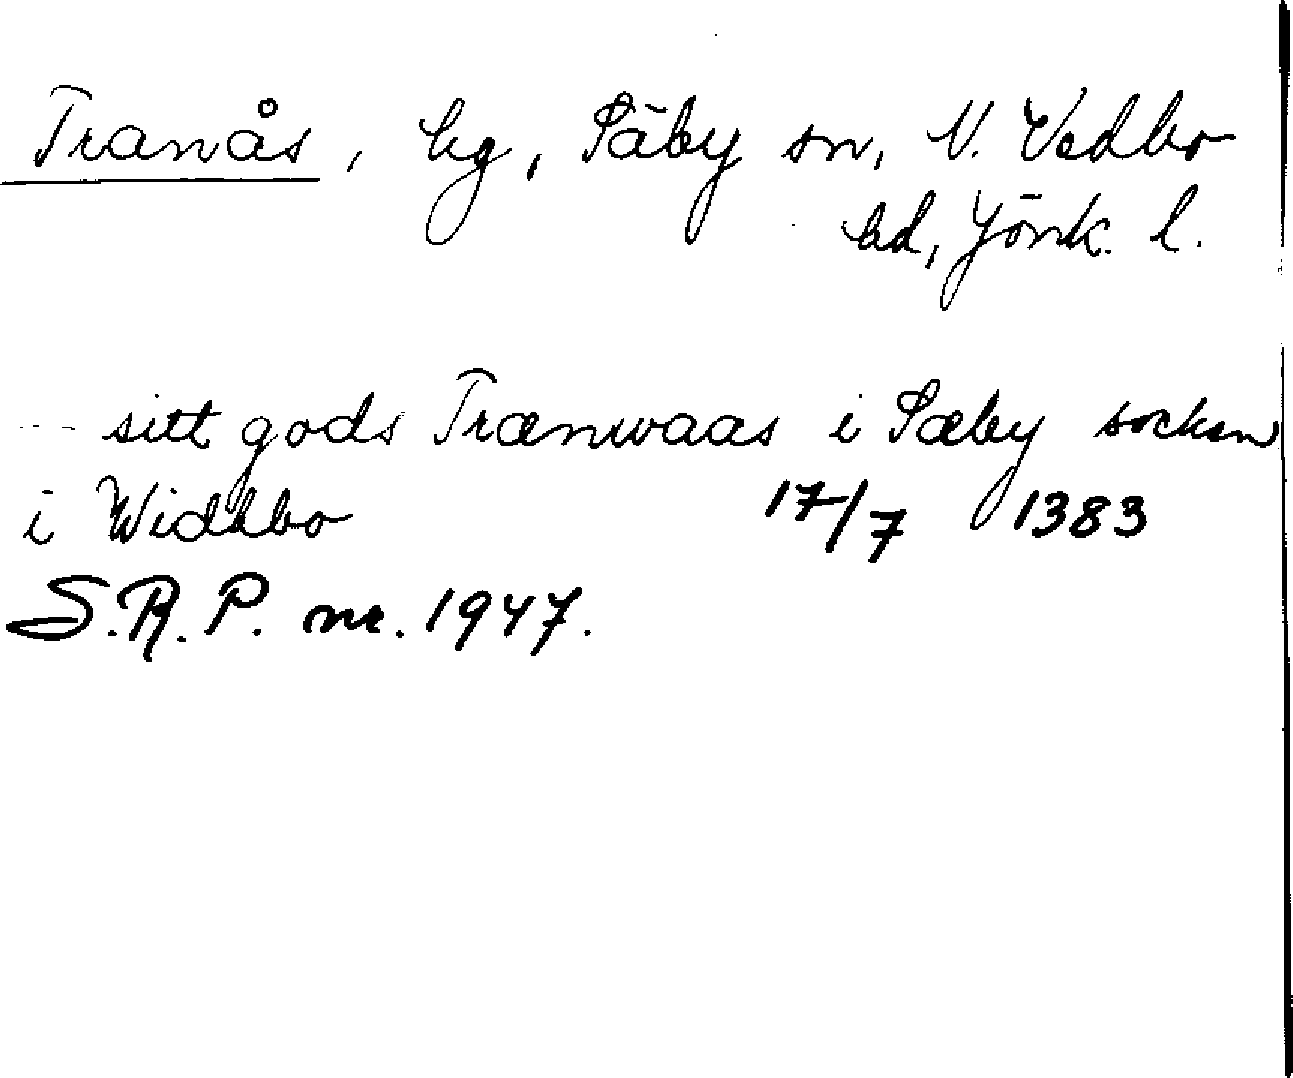 Tranås, hg, Säby sn, N. Vedbo
hd, Jönk. l.
--- sitt gods Trænwaas i Sæby socken
i Widhbo 17/7 1383
S.R.P. nr. 1947.